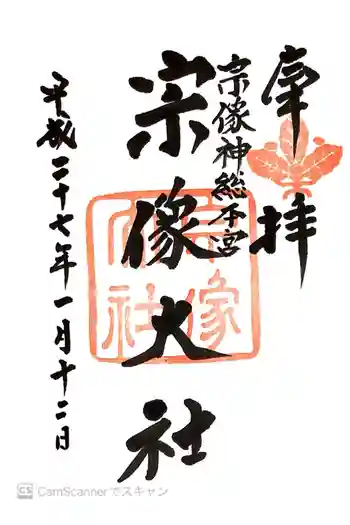 奉拝
宗像神総本宮
宗像大社
平成二十七年一月十二日
宗像大社
CS CamScannerでスキャン